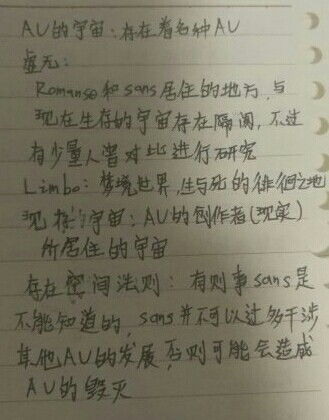 AU的宇宙：存在着各种AU
虚无：
Romanse和sans居住的地方，与
现在生存的宇宙存在隔阂，不过
有少量人曾对此进行研究
Limbo：梦境世界，生与死的徘徊之地
现在的宇宙：AU的创作者（现实）
所居住的宇宙
存在空间法则：有则事sans是
不能知道的，sans并不可以过多干涉
其他AU的发展，否则可能会造成
AU的毁灭